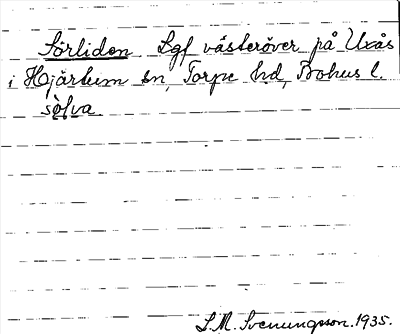 Sörliden Lgf västeröver på Uxås
i Hjärtum sn, Torpe hd, Bohus l.
sòlva.
L.M. Svenungsson. 1935.